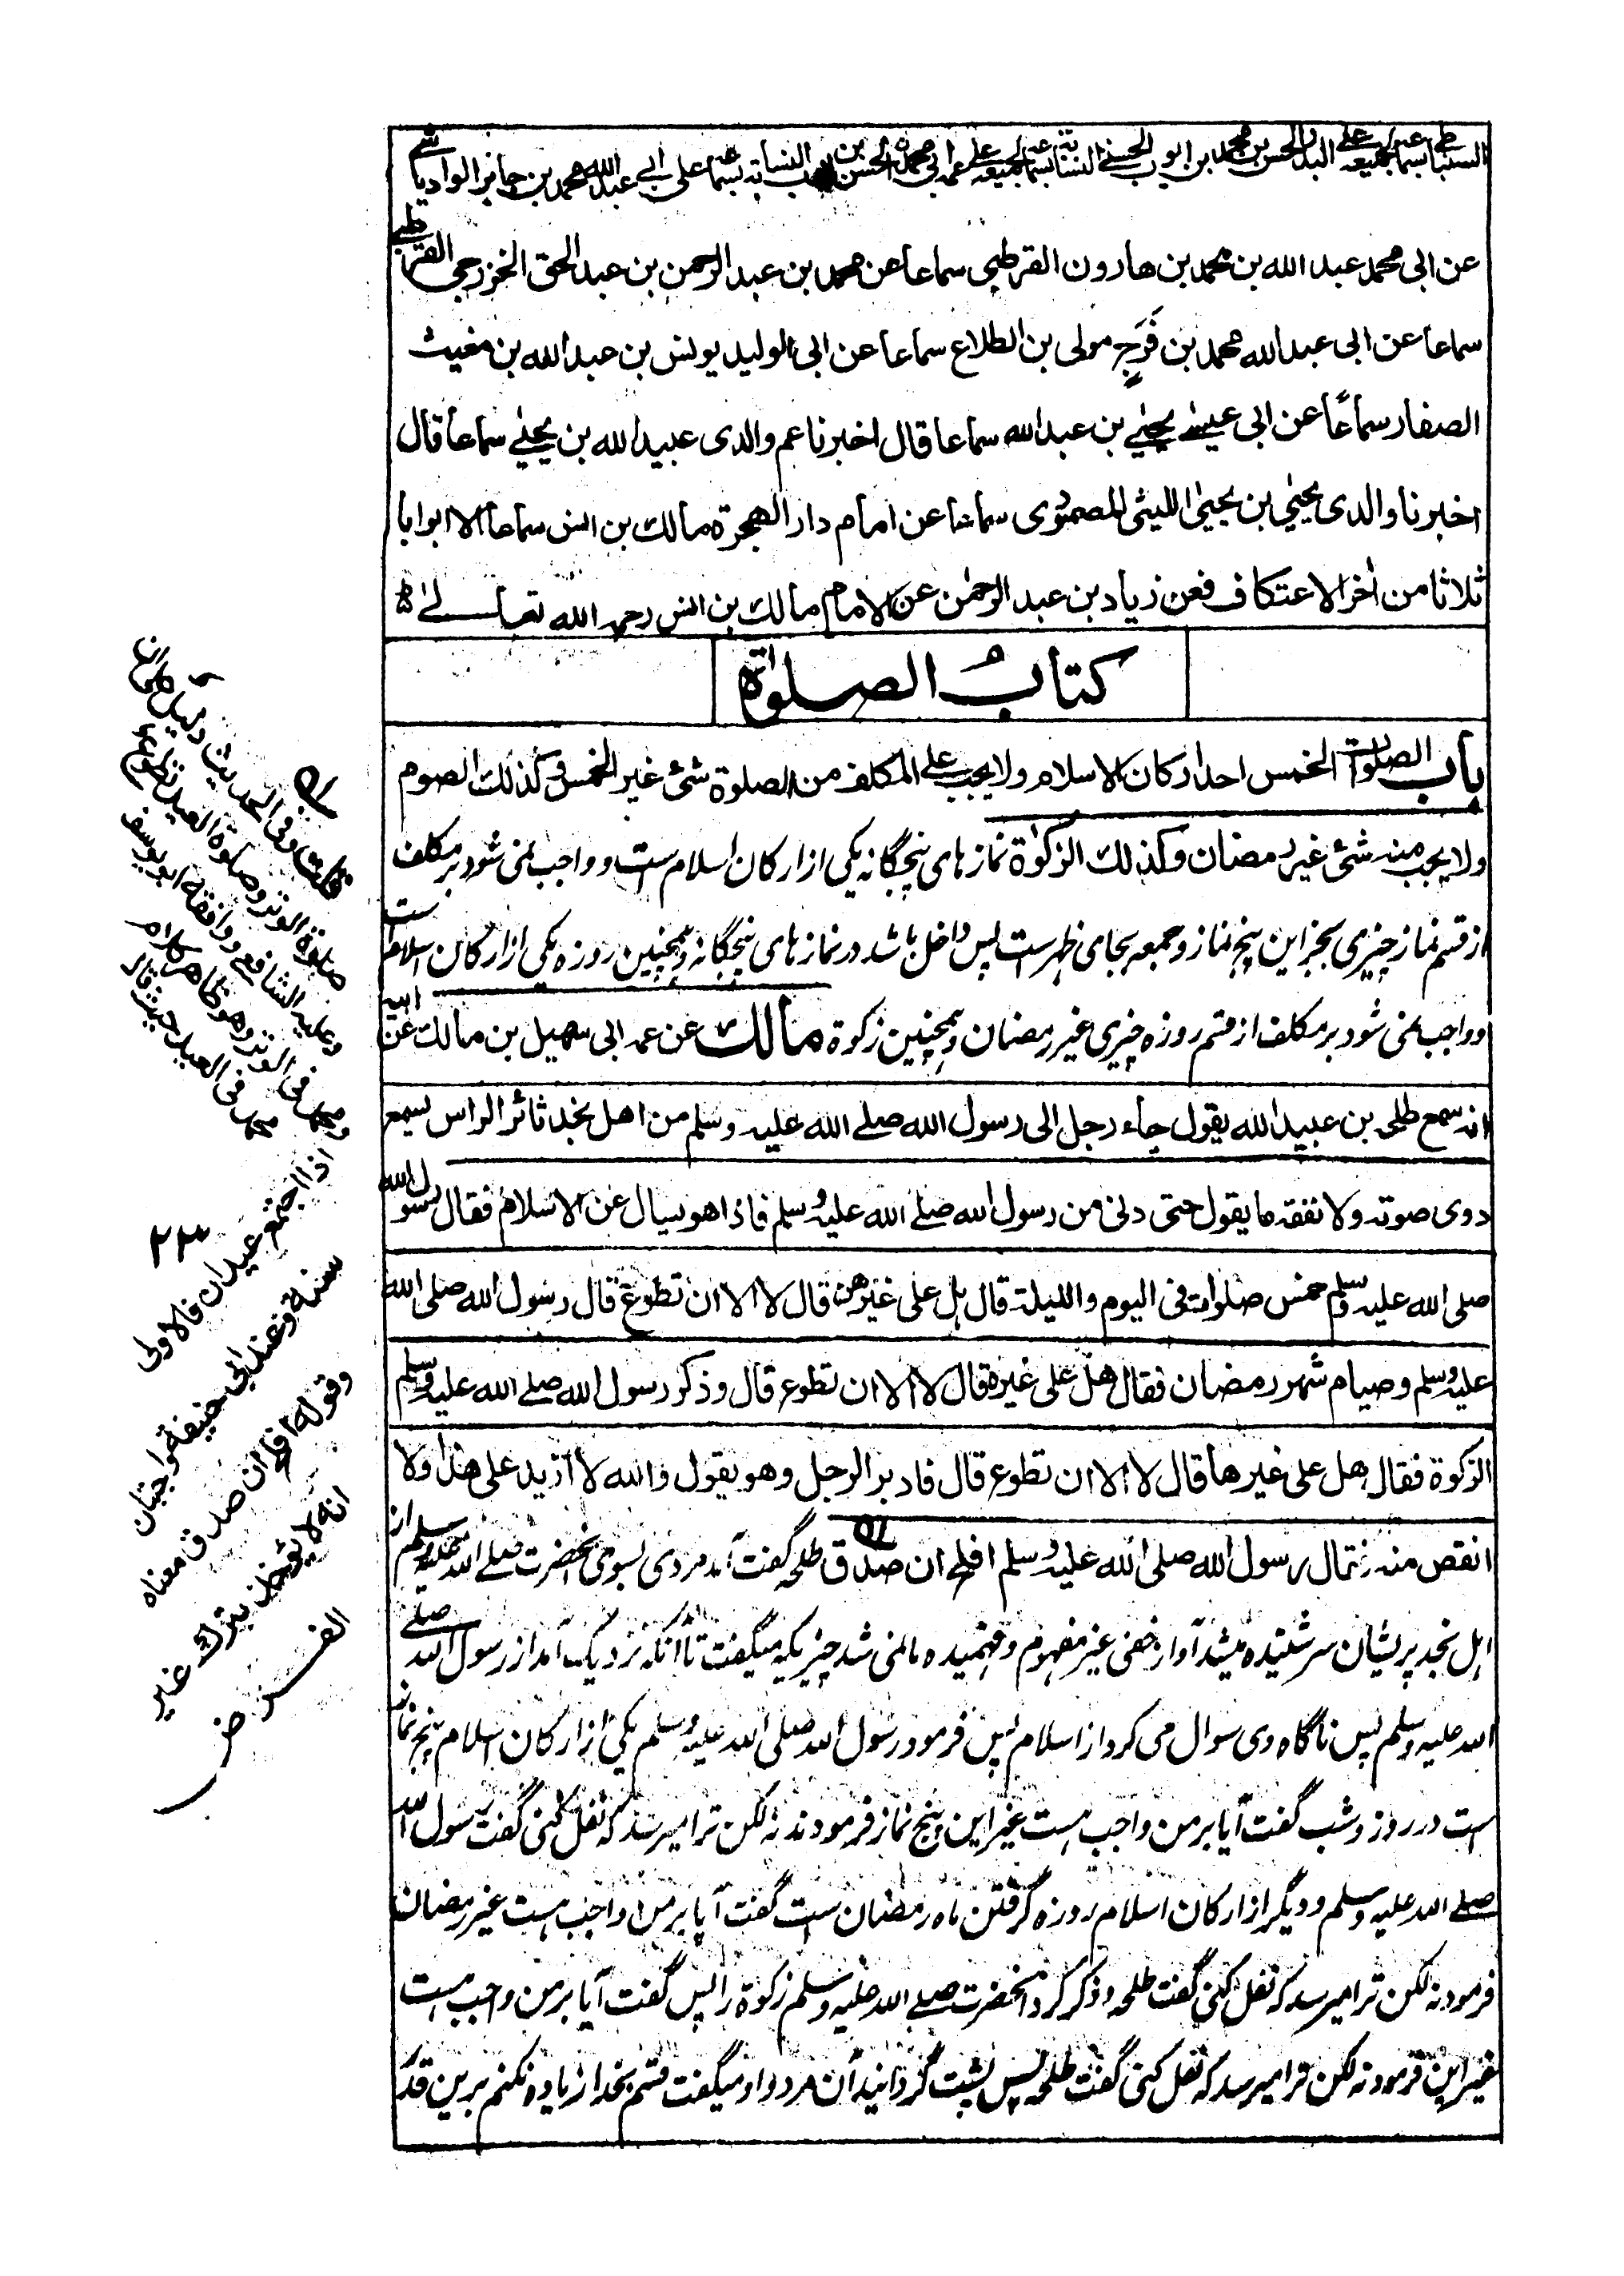 السنباطي بسماعه لجميعه على البدر الحسن بن محمد بن ايوب الحسني النسابة بسماعه لجميعه على عمه ابي محمد الحسن بن ايوب النسابه بسماعه على ابي عبد الله محمد بن جابر الوادياشي
عن ابى محمد عبد الله بن محمد بن هارون القرطبى سماعا عن محمد بن عبد الرحمن بن عبد الحق الخزرجى القرطبى
سماعا عن ابى عبد الله محمد بن فَرَج مولى بن الطلاع سماعا عن ابى الوليد يونس بن عبد الله بن مغيث
الصفار سماعًا عن ابى عيسى يحيى بن عبد الله سماعا قال اخبرنا عم والدى عبيد الله بن يحيى سماعا قال
اخبرنا والدى يحيى بن يحيى الليثى المصمودى سماعا عن امام دار الهجرة مالك بن انس سماعا الا ابوابا
ثلاثا من اخر الاعتكاف فعن زياد بن عبد الرحمن عن الامام مالك بن انس رحمه الله تعالى
كتابُ الصلوٰة
باب الصلوات الخمس احد اركان الاسلام ولا يجب على المكلف من الصلوة شئ غير الخمس وكذلك الصوم
ولا يجب منه شئ غير رمضان وكذلك الزكوٰة نمازهاى پنجگانه يكى از اركان اسلام ست و واجب نمى شود بر مكلف
از قسم نماز چيزى بجز اين پنج نماز و جمعه بجاى ظهر است پس داخل باشد در نمازهاى پنجگانه و همچنين روزه يكى از اركان اسلام ست
و واجب نمى شود بر مكلف از قسم روزه چيزى غير رمضان و همچنين زكوة مالك عن عمه ابى سهيل بن مالك عن ابيه
انه سمع طلحة بن عبيد الله يقول جاء رجل الى رسول الله صلى الله عليه وسلم من اهل نجد ثائر الراس يسمع
دوى صوته ولا نفقه ما يقول حتى دنى من رسول الله صلى الله عليه وسلم فاذا هو يسال عن الاسلام فقال رسول الله
صلى الله عليه وسلم خمس صلوات فى اليوم والليلة قال هل على غيرهن قال لا الا ان تطوع قال رسول الله صلى الله
عليه وسلم وصيام شهر رمضان فقال هل على غيره قال لا الا ان تطوع قال وذكر رسول الله صلى الله عليه وسلم
الزكوة فقال هل على غيرها قال لا الا ان تطوع قال فادبر الرجل وهو يقول والله لا ازيد على هذا ولا
انقص منه فقال رسول الله صلى الله عليه وسلم افلح ان صدق طلحه گفت آمد مردى بسوى آنحضرت صلى الله عليه وسلم از
اهل نجد پريشان سر شنيده ميشد آواز خفى غير مفهوم و فهميده ما نمى شد چيزيكه ميگفت تا آنكه نزديك آمد از رسول الله صلى
الله عليه وسلم پس ناگاه وى سوال مى كرد از اسلام پس فرمود رسول الله صلى الله عليه وسلم يكى از اركان اسلام پنج نماز
است در روز و شب گفت آيا بر من واجب هست غير اين پنج نماز فرمودند نه لكن ترا ميرسد كه نفل كنى گفت رسول الله
صلى الله عليه وسلم و ديگر از اركان اسلام روزه گرفتن ماه رمضان است گفت آيا بر من واجب هست غير رمضان
فرمود نه لكن ترا ميرسد كه نفل كنى گفت طلحه و ذكر كرد آنحضرت صلى الله عليه وسلم زكوة را پس گفت آيا بر من واجب هست
غير اين فرمود نه لكن ترا ميرسد كه نفل كنى گفت طلحه پس پشت گردانيد آن مرد و او ميگفت قسم بخدا زياده نكنم برين قدر
قلت وفى الحديث دليل على ان
صلوة الوتر وصلوة العيد تطوع
وعليه الشافعى ووافقه ابو يوسف
ومحمد فى الوتر وهو ظاهر كلام
محمد فى العيد حيث قال
اذا اجتمع عيدان فالاولى
سنة وعند ابى حنيفة واجبتان
وقوله افلح ان صدق معناه
انه لا يؤخذ بترك غير
الفرض